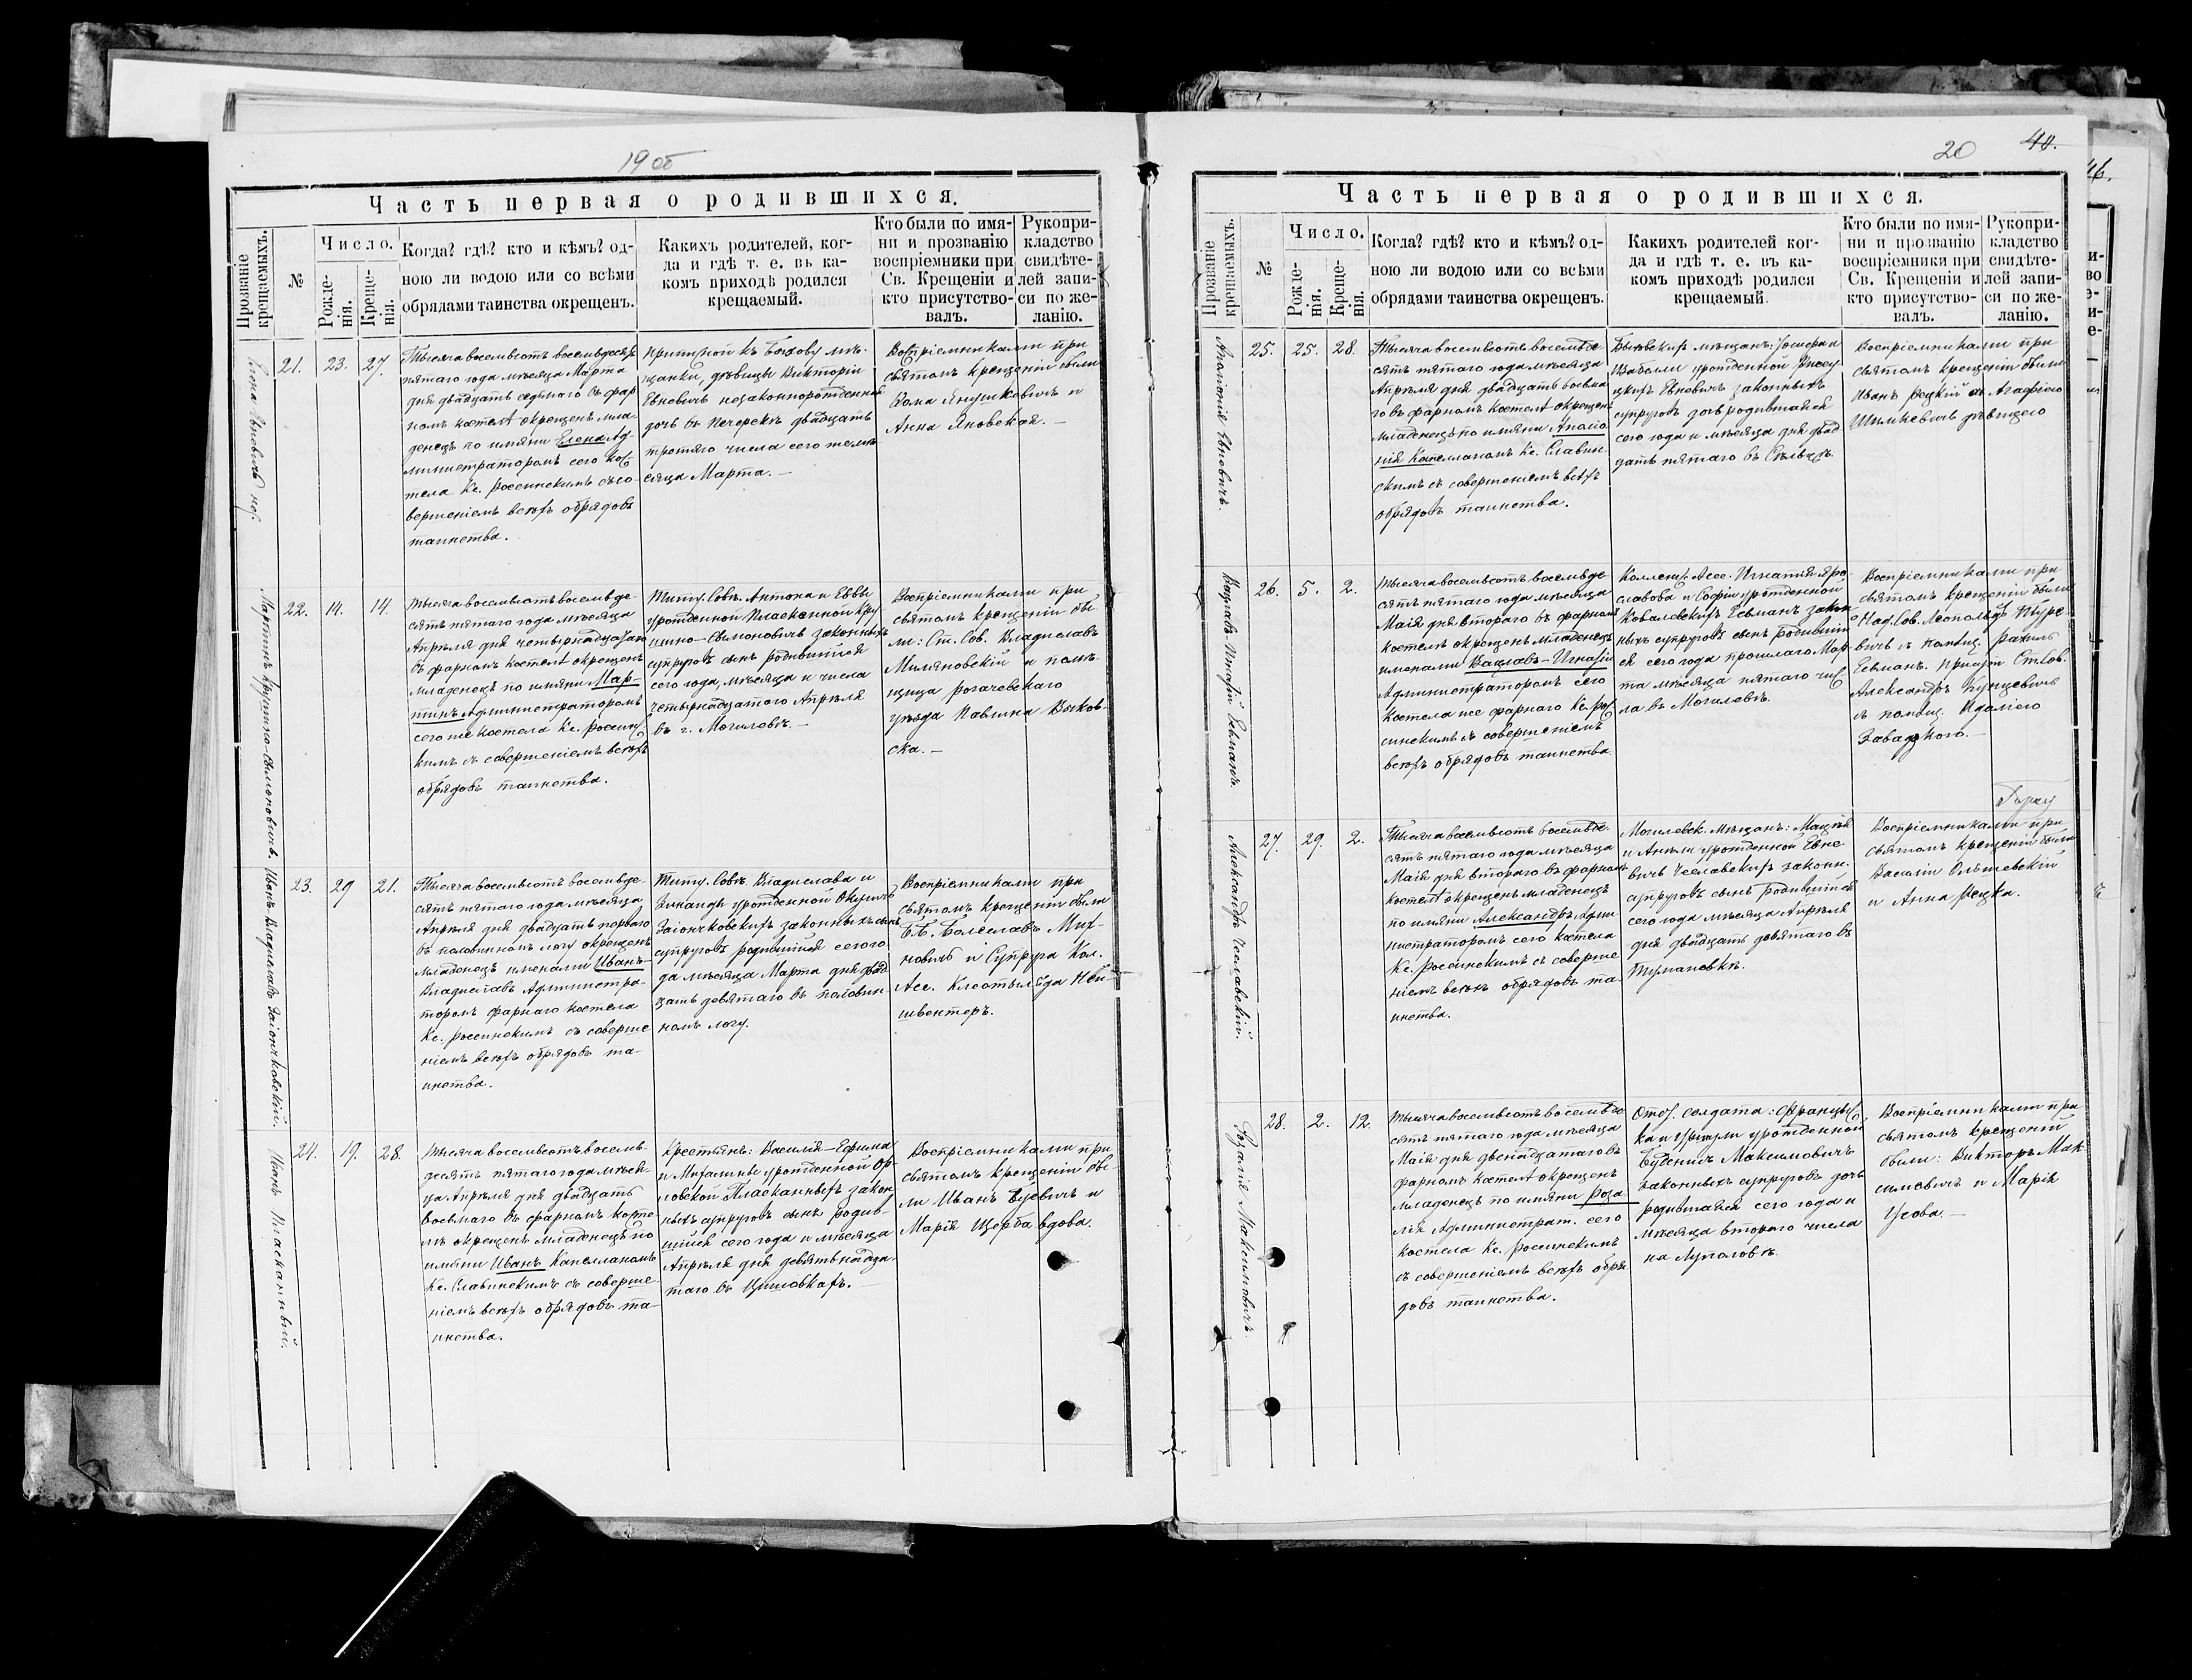 19 об
Часть первая о родившихся.
Прозваніе крещаемыхъ.
№
Число.
Рожде-
нія.
Креще-
нія.
Когда? гдѣ? кто и кѣмъ? од-
ною ли водою или со всѣми
обрядами таинства окрещенъ.
Какихъ родителей, ког-
да и гдѣ т. е. въ ка-
комъ приходѣ родился
крещаемый.
Кто были по имя-
ни и прозванію
воспріемники при
Св. Крещеніи и
кто присутство-
валъ.
Рукопри-
кладство
свидѣте-
лей запи-
си по же-
ланію.
Елена Евневичъ
21.
23.
27.
Тысяча восемьсотъ восемьдесятъ
пятаго года мѣсяца Марта
дня двадцать седьмаго въ фар
номъ костелѣ окрещенъ мла-
денецъ по имяни Елена Ад-
министраторомъ сего кос
тела Кс. Россинскимъ съ со-
вершеніемъ всѣхъ обрядовъ
таинства.
мѣ-
щанки, дѣвицы Викторіи
Евневичъ незаконнорожденная
дочь въ Печерскѣ двадцать
третяго числа сего же мѣ
сяца Марта. —
Воспріемниками при
святомъ крещеніи были
Янушкевичъ и
Анна Яновская. —
Мартинъ Крушино-Самоновичъ.
22.
14.
14.
Тысяча восемьсотъ восемьде-
сятъ пятаго года мѣсяца
Апрѣля дня четырнадцатаго
въ фарномъ костелѣ окрещенъ
младенецъ по имяни Мар-
тинъ Администраторомъ
сего же костела Кс. Россинс
кимъ съ совершеніемъ всѣхъ
обрядовъ таинства.
Титу. Совѣ. Антона и Еввы
урожденной Пласканной Кру
законныхъ
супруговъ сынъ родившійся
сего года, мѣсяца и числа
четырнадцатого Апрѣля
въ г. Могилевѣ. —
Воспріемниками при
святомъ крещеніи бы-
ли: Ст. Сов. Владиславъ
Миляновскій и помѣ-
щица рогачевскаго
уѣзда Павлина Выков-
ска. —
Иванъ-Владиславъ Заіончковскій.
23.
29
21.
Тысяча восемьсотъ восемьде-
сятъ пятаго года мѣсяца
Апрѣля дня двадцать перваго
въ половинномъ логу окрещенъ
младенецъ именами Иванъ-
Владиславъ Администра-
торомъ фарнаго костела
Кс. Россинскимъ съ соверше
ніемъ всѣхъ обрядовъ та-
инства.
Титу. Совѣ. Владислава и
Зинаиды урожденной
Заіончковскихъ законныхъ
супруговъ родившійся сего го
да мѣсяца Марта дня двад
цать девятаго въ половин-
номъ логу.
Воспріемниками при
святомъ крещеніи были
Болеславъ Мих-
новичъ и Супруга Кол.
Асс. Клеотыльда Ней-
швентеръ.
Иванъ Пласканный.
24.
19.
28.
Тысяча восемьсотъ восемь-
десятъ пятаго года мѣся-
ца Апрѣля дня двадцать
восьмаго въ фарномъ косте
лѣ окрещенъ младенецъ по
имяни Иванъ Капелланомъ
Кс. Славинскимъ съ соверше-
ніемъ всѣхъ обрядовъ та-
инства.
Крестьянъ: Василія-Ефима
и урожденной Ор-
ловской Пласканныхъ закон
ныхъ супруговъ сынъ родив-
шійся сего года и мѣсяца
Апрѣля дня девятьнадца
таго въ
Воспріемниками при
святомъ крещеніи бы-
ли Иванъ и
Марія Щерба вдова.
20
40.
Часть первая о родившихся.
Прозваніе крещаемыхъ.
№
Число.
Рожде-
нія.
Креще-
нія.
Когда? гдѣ? кто и кѣмъ? од-
ною ли водою или со всѣми
обрядами таинства окрещенъ.
Какихъ родителей ког-
да и гдѣ т. е. въ ка-
комъ приходѣ родился
крещаемый.
Кто были по имя-
ни и прозванію
воспріемники при
Св. Крещеніи и
кто присутство-
валъ.
Рукопри-
кладство
свидѣте-
лей запи-
си по же-
ланію.
Евневичъ.
25.
25.
28.
Тысяча восемьсотъ восемьде
сятъ пятаго года мѣсяца
Апрѣля дня двадцать восьма
го въ фарномъ костелѣ окрещенъ
младенецъ по имяни Аполо
нія Капелланомъ Кс. Славин-
скимъ съ совершеніемъ всѣхъ
обрядовъ таинства.
Быховскихъ мѣщанъ: Іосифа и
Изабелли урожденной
Евневичъ законныхъ
супруговъ дочь родившаяся
сего года и мѣсяца дня двад
цать пятаго въ
Воспріемниками при
святомъ крещеніи были
Иванъ Рецкій съ Агафіею
Шимкевичъ дѣвицею
Вацлавъ Игнатій Гевманъ.
26.
5.
2.
Тысяча восемьсотъ восемьде
сятъ пятаго года мѣсяца
Маія дня втораго въ фарномъ
костелѣ окрещенъ младенецъ
именами Вацлавъ-Игнатій
Администраторомъ сего
костела же фарнаго Кс. Рос
синскимъ съ совершеніемъ
всѣхъ обрядовъ таинства.
Коллеж. Асес. Игнатія Яро-
славова и Софіи урожденной
Ковалевскихъ Гевманъ закон
ныхъ супруговъ сынъ родившій
ся сего года прошлаго Мар-
та мѣсяца пятаго чис
ла въ Могилевѣ.
Воспріемниками при
святомъ крещеніи были
Над. Сов. Леопольдъ
вичъ съ помѣщ.
Гевманъ. Присут. Ст. Сов.
Александръ Кунцевичъ
съ помѣщ. Идаліею
Завадзкою. —
Александръ Чеславскій.
27.
29.
2.
Тысяча восемьсотъ восемьде-
сятъ пятаго года мѣсяца
Маія дня втораго въ фарномъ
костелѣ окрещенъ младенецъ
по имяни Александръ Адми
нистраторомъ сего костела
Кс. Россинскимъ съ соверше
ніемъ всѣхъ обрядовъ та-
инства.
Могилевск. мѣщанъ:
и Анели урожденной Евне-
вичъ Чеславскихъ законн.
супруговъ сынъ родившійся
сего года мѣсяца Апрѣля
дня двадцать девятаго въ
Тумановкѣ.
Воспріемниками при
святомъ крещеніи были
Василій Ольшевскій
и Анна Рецка.
Розалія Максимовичъ.
28.
2.
12.
Тысяча восемьсотъ восемьде
сятъ пятаго года мѣсяца
Маія дня двенадцатаго въ
фарномъ костелѣ окрещенъ
младенецъ по имяни Роза
лія Администрат. сего
костела Кс. Россинскимъ
съ совершеніемъ всѣхъ обря
довъ таинства.
Отс. солдата: Францыс
ка и Уршули урожденной
Максимовичъ
законныхъ супруговъ дочь
родившаяся сего года и
мѣсяца втораго числа
на Луполовѣ.
Воспріемниками при
святомъ крещеніи
были: Викторъ Мак-
симовичъ и Марія
Усова. —